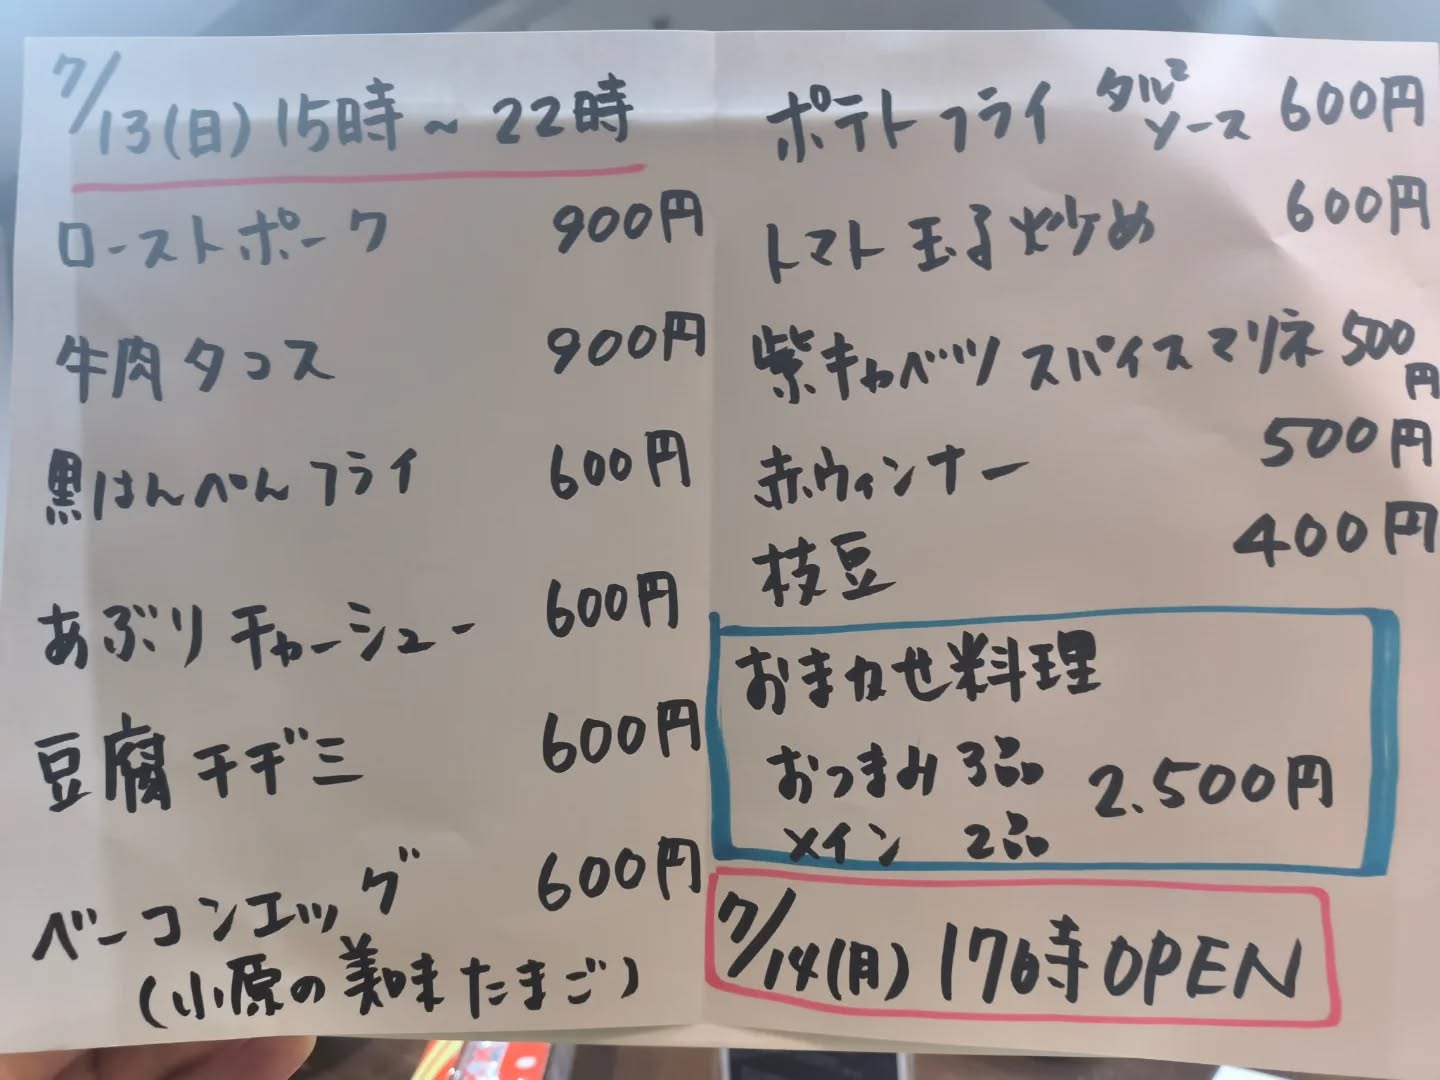 7/13(日)15時~22時
ローストポーク 900円
牛肉タコス 900円
黒はんぺんフライ 600円
あぶりチャーシュー 600円
豆腐チヂミ 600円
ベーコンエッグ 600円
(小原の美味たまご)
ポテトフライ タル2ソース 600円
トマト玉子炒め 600円
紫キャベツスパイスマリネ 500円
赤ウィンナー 500円
枝豆 400円
おまかせ料理
おつまみ3品 2.500円
メイン 2品
7/14(月)17時OPEN